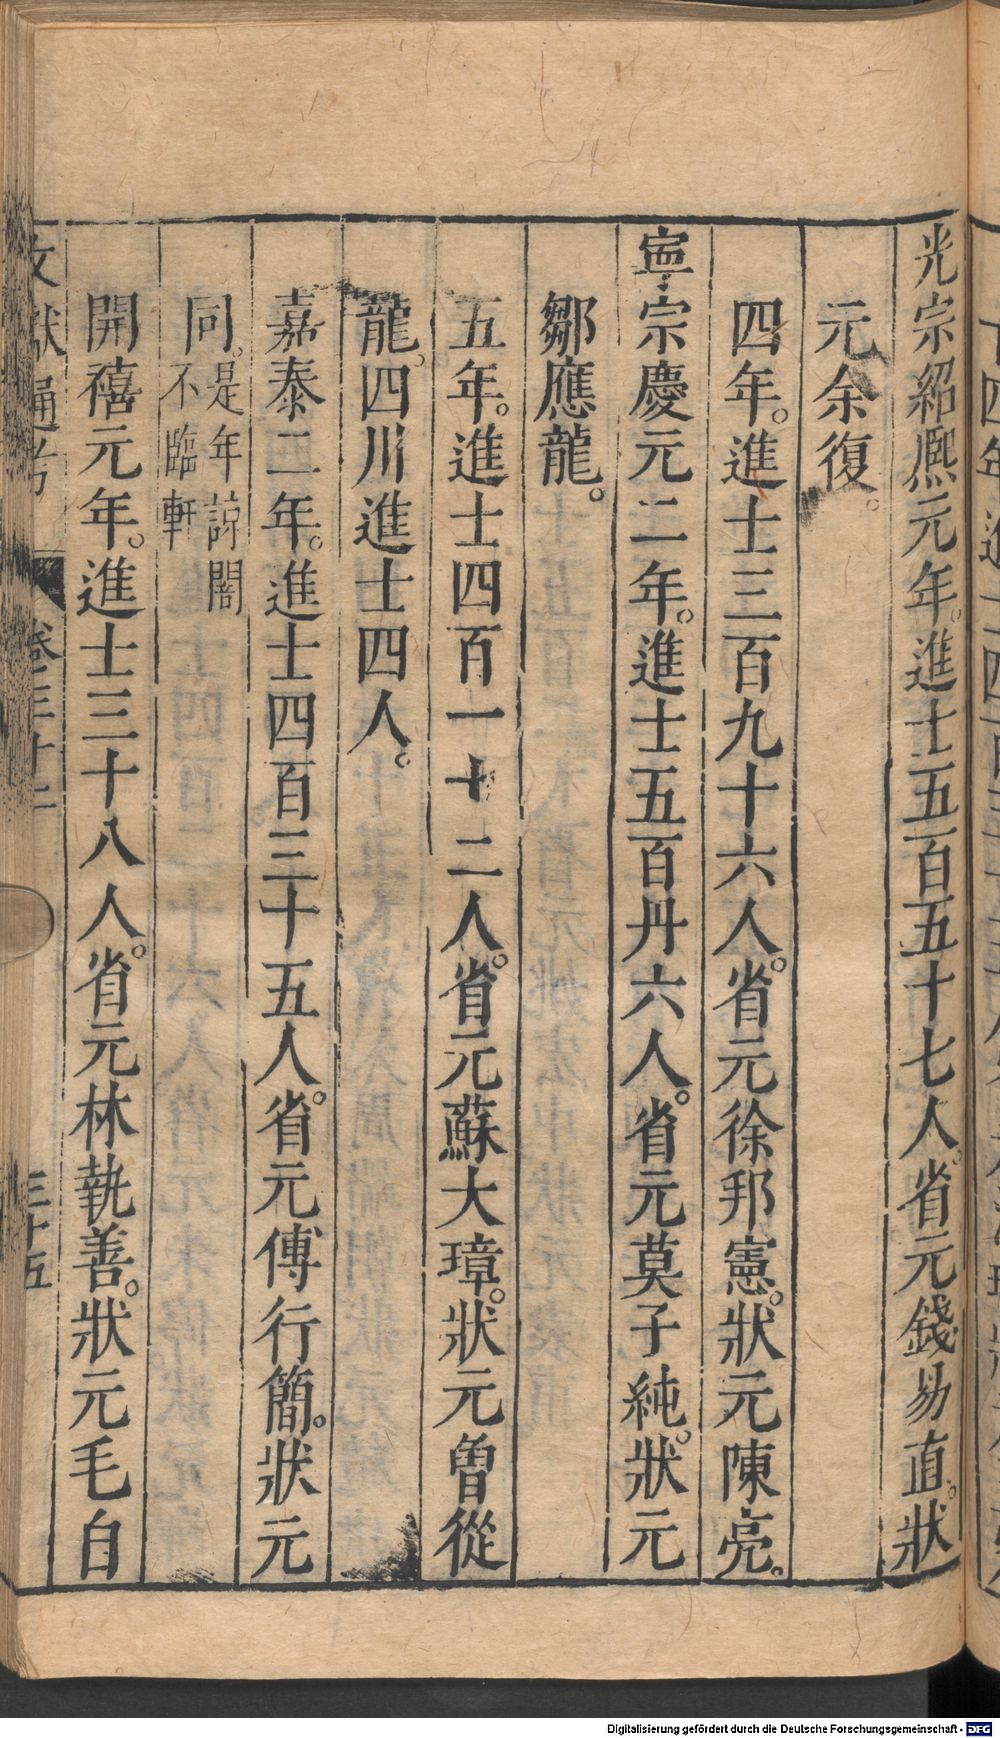 光宗紹熈元年。進士五百五十七人。省元錢易直。狀
元余復。
四年。進士三百九十六人。省元徐邦憲。狀元陳亮。
寧宗慶元二年。進士五百丹六人。省元莫子純。狀元
鄒應龍。
五年。進士四百一十二人。省元蘇大璋。狀元曾從
龍。四川進士四人。
嘉泰二年。進士四百三十五人。省元傅行簡。狀元
同。是年諒闇
不臨軒
開禧元年。進士三十八人。省元林執善。狀元毛自
文獻通考 卷三十二 三十五
Digitalisierung gefördert durch die Deutsche Forschungsgemeinschaft - DFG